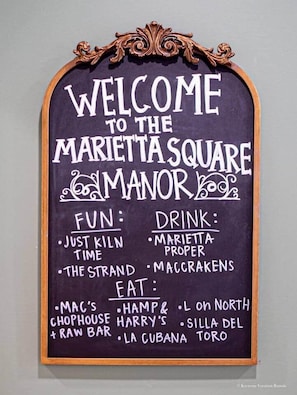 WELCOME
TO THE
MARIETTA SQUARE
MANOR
FUN:
• JUST KILN
TIME
• THE STRAND
DRINK:
• MARIETTA
PROPER
• MACCRAKENS
EAT:
• MAC'S
CHOPHOUSE
+ RAW BAR
• HAMP &
HARRY'S
• LA CUBANA
• L ON NORTH
• SILLA DEL
TORO